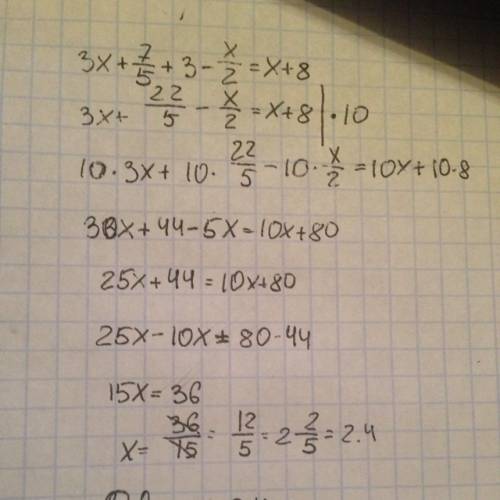 3x + 7/5 + 3 - x/2 = x + 8
3x + 22/5 - x/2 = x + 8 | · 10
10 · 3x + 10 · 22/5 - 10 · x/2 = 10x + 10 · 8
30x + 44 - 5x = 10x + 80
25x + 44 = 10x + 80
25x - 10x = 80 - 44
15x = 36
x = 36/15 = 12/5 = 2 2/5 = 2.4